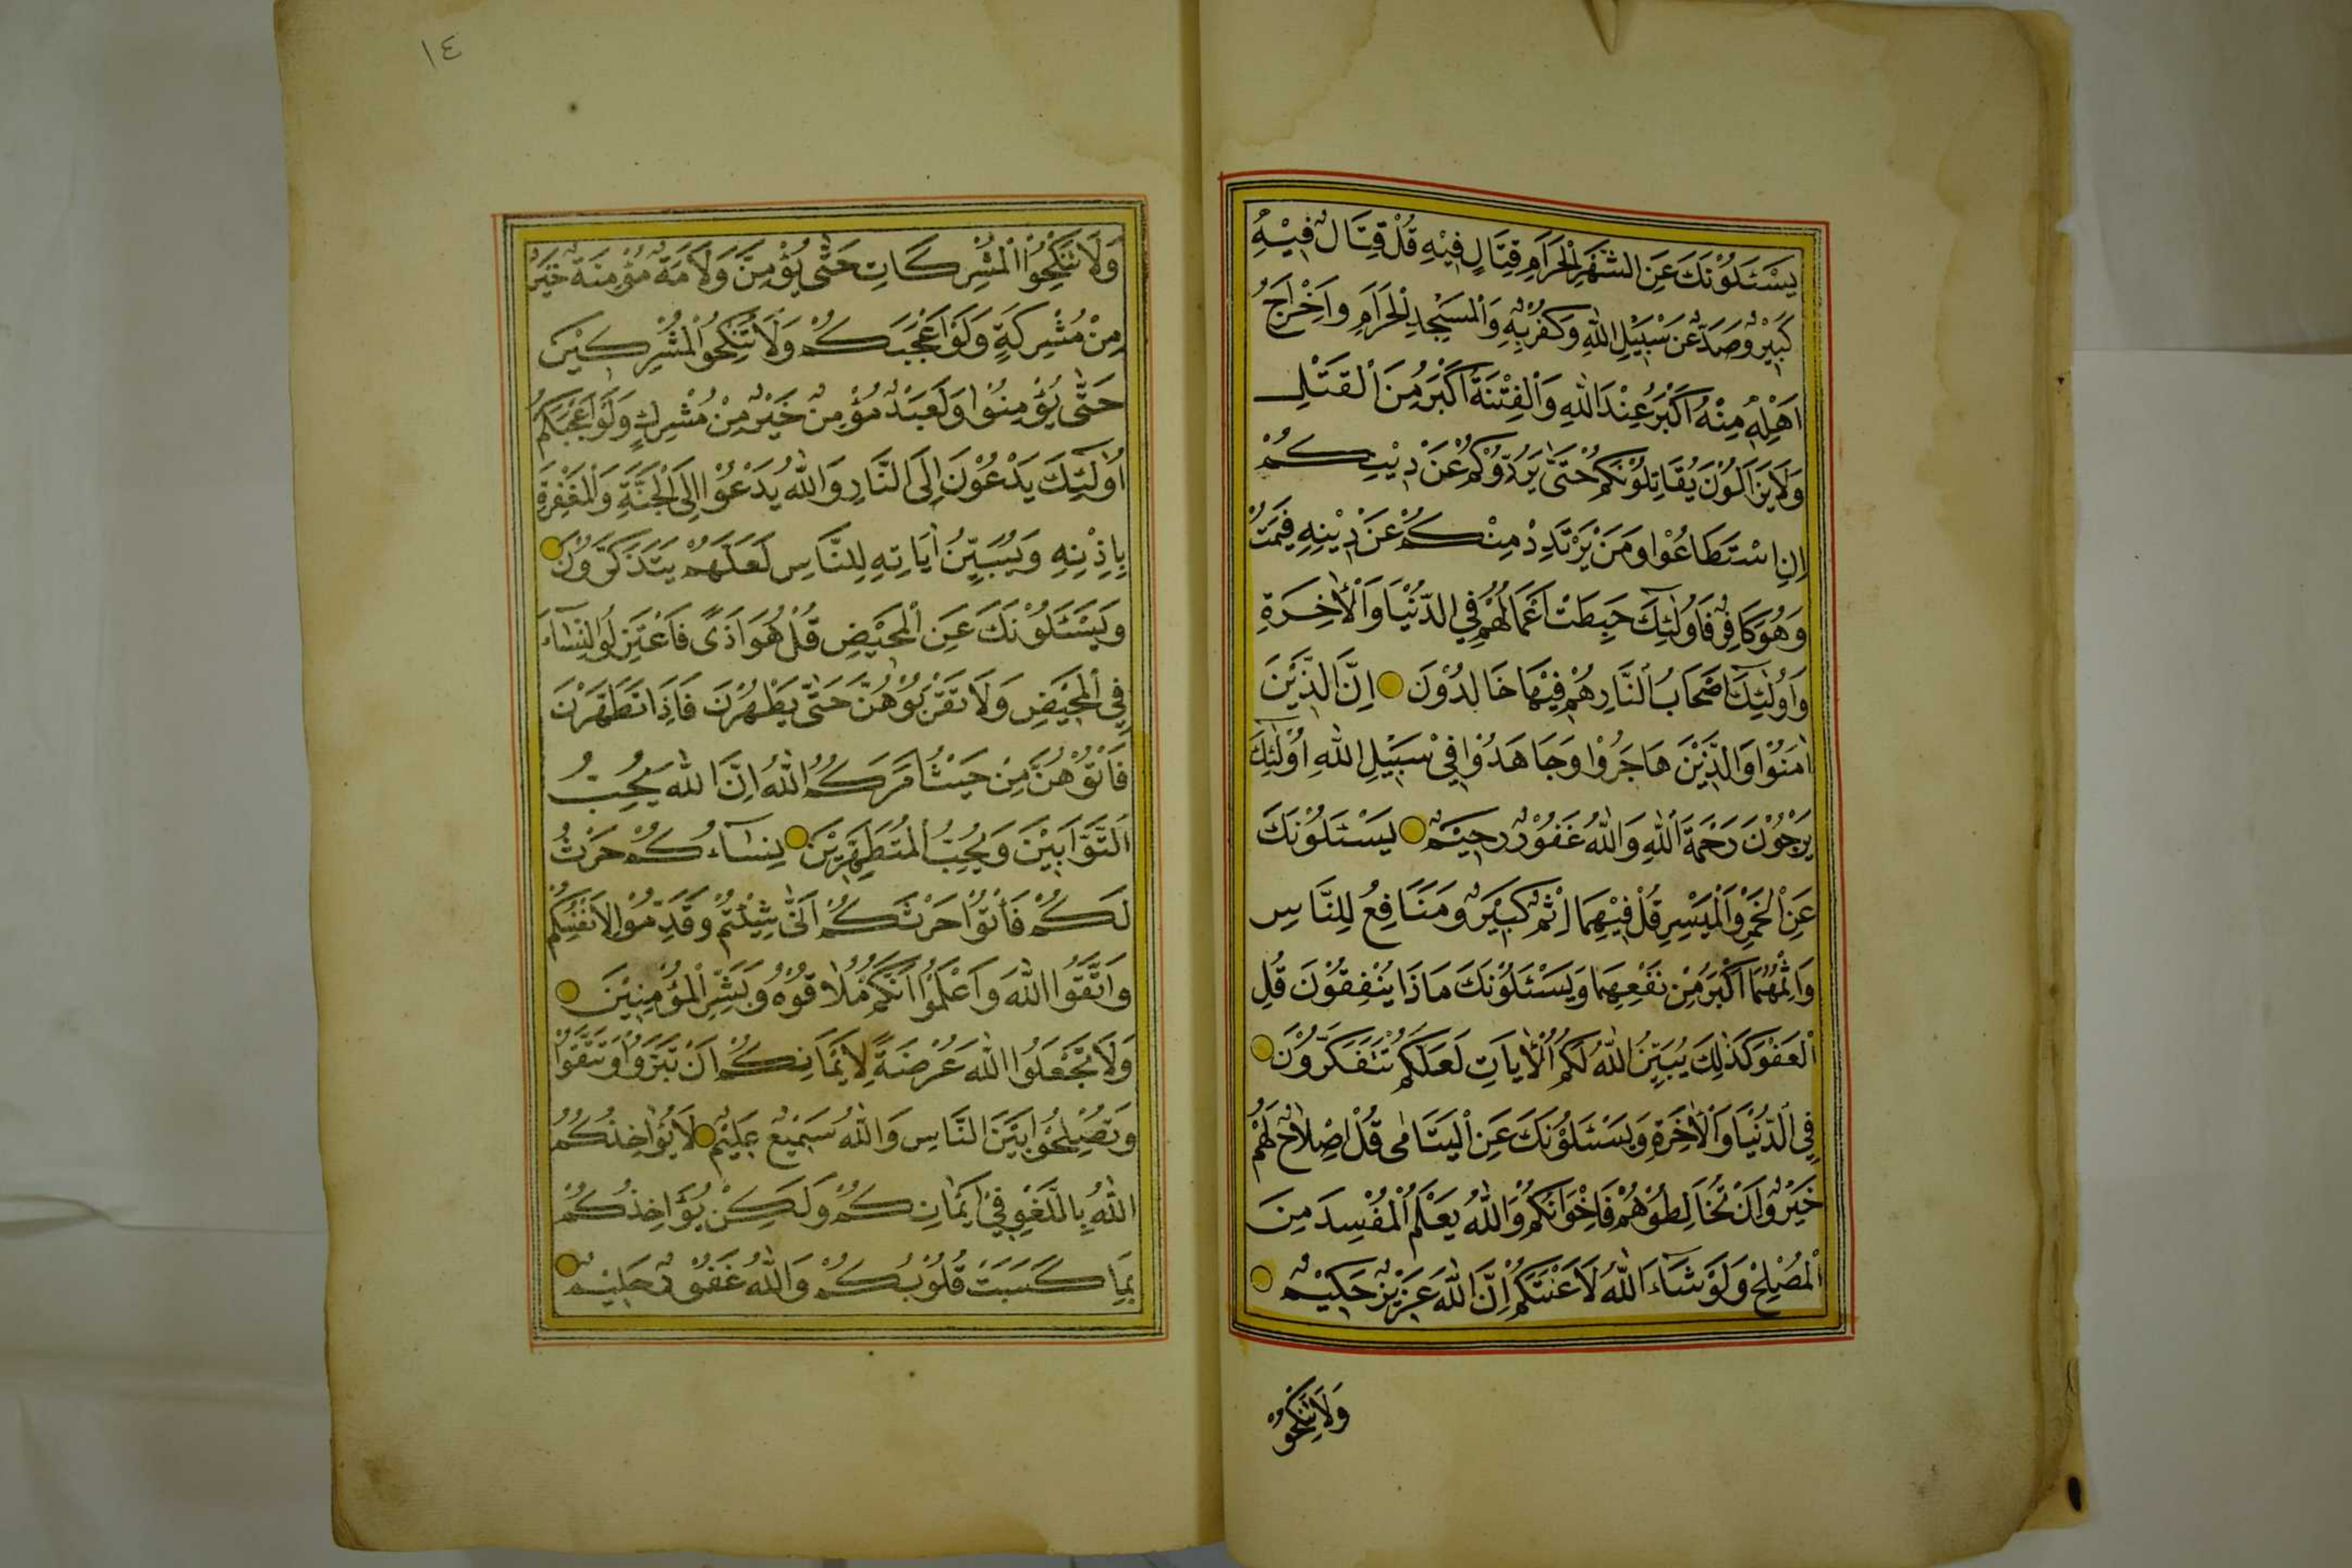 يَسْـَٔلُوْنَكَ عَنِ الشَّهْرِ الْحَرَامِ قِتَالٍ فِيْهِ قُلْ قِتَالٌ فِيْهِ
كَبِيْرٌ وَصَدٌّ عَنْ سَبِيْلِ اللّٰهِ وَكُفْرٌ بِهٖ وَالْمَسْجِدِ الْحَرَامِ وَاِخْرَاجُ
اَهْلِهٖ مِنْهُ اَكْبَرُ عِنْدَ اللّٰهِ وَالْفِتْنَةُ اَكْبَرُ مِنَ الْقَتْلِ
وَلَا يَزَالُوْنَ يُقَاتِلُوْنَكُمْ حَتّٰى يَرُدُّوْكُمْ عَنْ دِيْنِكُمْ
اِنِ اسْتَطَاعُوْا وَمَنْ يَرْتَدِدْ مِنْكُمْ عَنْ دِيْنِهٖ فَيَمُتْ
وَهُوَ كَافِرٌ فَاُولٰٓئِكَ حَبِطَتْ اَعْمَالُهُمْ فِي الدُّنْيَا وَالْاٰخِرَةِ
وَاُولٰٓئِكَ اَصْحَابُ النَّارِ هُمْ فِيْهَا خَالِدُوْنَ اِنَّ الَّذِيْنَ
اٰمَنُوْا وَالَّذِيْنَ هَاجَرُوْا وَجَاهَدُوْا فِيْ سَبِيْلِ اللّٰهِ اُولٰٓئِكَ
يَرْجُوْنَ رَحْمَةَ اللّٰهِ وَاللّٰهُ غَفُوْرٌ رَحِيْمٌ يَسْـَٔلُوْنَكَ
عَنِ الْخَمْرِ وَالْمَيْسِرِ قُلْ فِيْهِمَا اِثْمٌ كَبِيْرٌ وَمَنَافِعُ لِلنَّاسِ
وَاِثْمُهُمَا اَكْبَرُ مِنْ نَفْعِهِمَا وَيَسْـَٔلُوْنَكَ مَاذَا يُنْفِقُوْنَ قُلِ
الْعَفْوَ كَذٰلِكَ يُبَيِّنُ اللّٰهُ لَكُمُ الْاٰيَاتِ لَعَلَّكُمْ تَتَفَكَّرُوْنَ
فِي الدُّنْيَا وَالْاٰخِرَةِ وَيَسْـَٔلُوْنَكَ عَنِ الْيَتَامٰى قُلْ اِصْلَاحٌ لَهُمْ
خَيْرٌ وَاِنْ تُخَالِطُوْهُمْ فَاِخْوَانُكُمْ وَاللّٰهُ يَعْلَمُ الْمُفْسِدَ مِنَ
الْمُصْلِحِ وَلَوْ شَآءَ اللّٰهُ لَاَعْنَتَكُمْ اِنَّ اللّٰهَ عَزِيْزٌ حَكِيْمٌ
وَلَا تَنْكِحُوا
١٤
وَلَا تَنْكِحُوا الْمُشْرِكَاتِ حَتّٰى يُؤْمِنَّ وَلَاَمَةٌ مُؤْمِنَةٌ خَيْرٌ
مِنْ مُشْرِكَةٍ وَلَوْ اَعْجَبَتْكُمْ وَلَا تُنْكِحُوا الْمُشْرِكِيْنَ
حَتّٰى يُؤْمِنُوْا وَلَعَبْدٌ مُؤْمِنٌ خَيْرٌ مِنْ مُشْرِكٍ وَلَوْ اَعْجَبَكُمْ
اُولٰٓئِكَ يَدْعُوْنَ اِلَى النَّارِ وَاللّٰهُ يَدْعُوْا اِلَى الْجَنَّةِ وَالْمَغْفِرَةِ
بِاِذْنِهٖ وَيُبَيِّنُ اٰيَاتِهٖ لِلنَّاسِ لَعَلَّهُمْ يَتَذَكَّرُوْنَ
وَيَسْـَٔلُوْنَكَ عَنِ الْمَحِيْضِ قُلْ هُوَ اَذًى فَاعْتَزِلُوا النِّسَآءَ
فِي الْمَحِيْضِ وَلَا تَقْرَبُوْهُنَّ حَتّٰى يَطْهُرْنَ فَاِذَا تَطَهَّرْنَ
فَاْتُوْهُنَّ مِنْ حَيْثُ اَمَرَكُمُ اللّٰهُ اِنَّ اللّٰهَ يُحِبُّ
التَّوَّابِيْنَ وَيُحِبُّ الْمُتَطَهِّرِيْنَ نِسَآءُكُمْ حَرْثٌ
لَكُمْ فَاْتُوْا حَرْثَكُمْ اَنّٰى شِئْتُمْ وَقَدِّمُوْا لِاَنْفُسِكُمْ
وَاتَّقُوا اللّٰهَ وَاعْلَمُوْا اَنَّكُمْ مُلَاقُوْهُ وَبَشِّرِ الْمُؤْمِنِيْنَ
وَلَا تَجْعَلُوا اللّٰهَ عُرْضَةً لِاَيْمَانِكُمْ اَنْ تَبَرُّوْا وَتَتَّقُوْا
وَتُصْلِحُوْا بَيْنَ النَّاسِ وَاللّٰهُ سَمِيْعٌ عَلِيْمٌ لَا يُؤَاخِذُكُمُ
اللّٰهُ بِاللَّغْوِ فِيْ اَيْمَانِكُمْ وَلٰكِنْ يُؤَاخِذُكُمْ
بِمَا كَسَبَتْ قُلُوْبُكُمْ وَاللّٰهُ غَفُوْرٌ حَلِيْمٌ